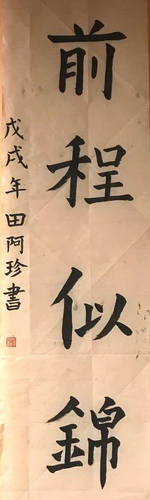 前程似錦
戊戌年田阿珍書